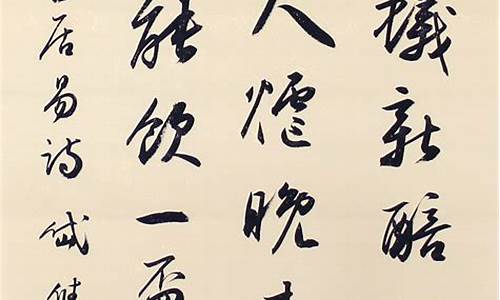 蟻新醅
火爐晚
能飲一盃
居易詩